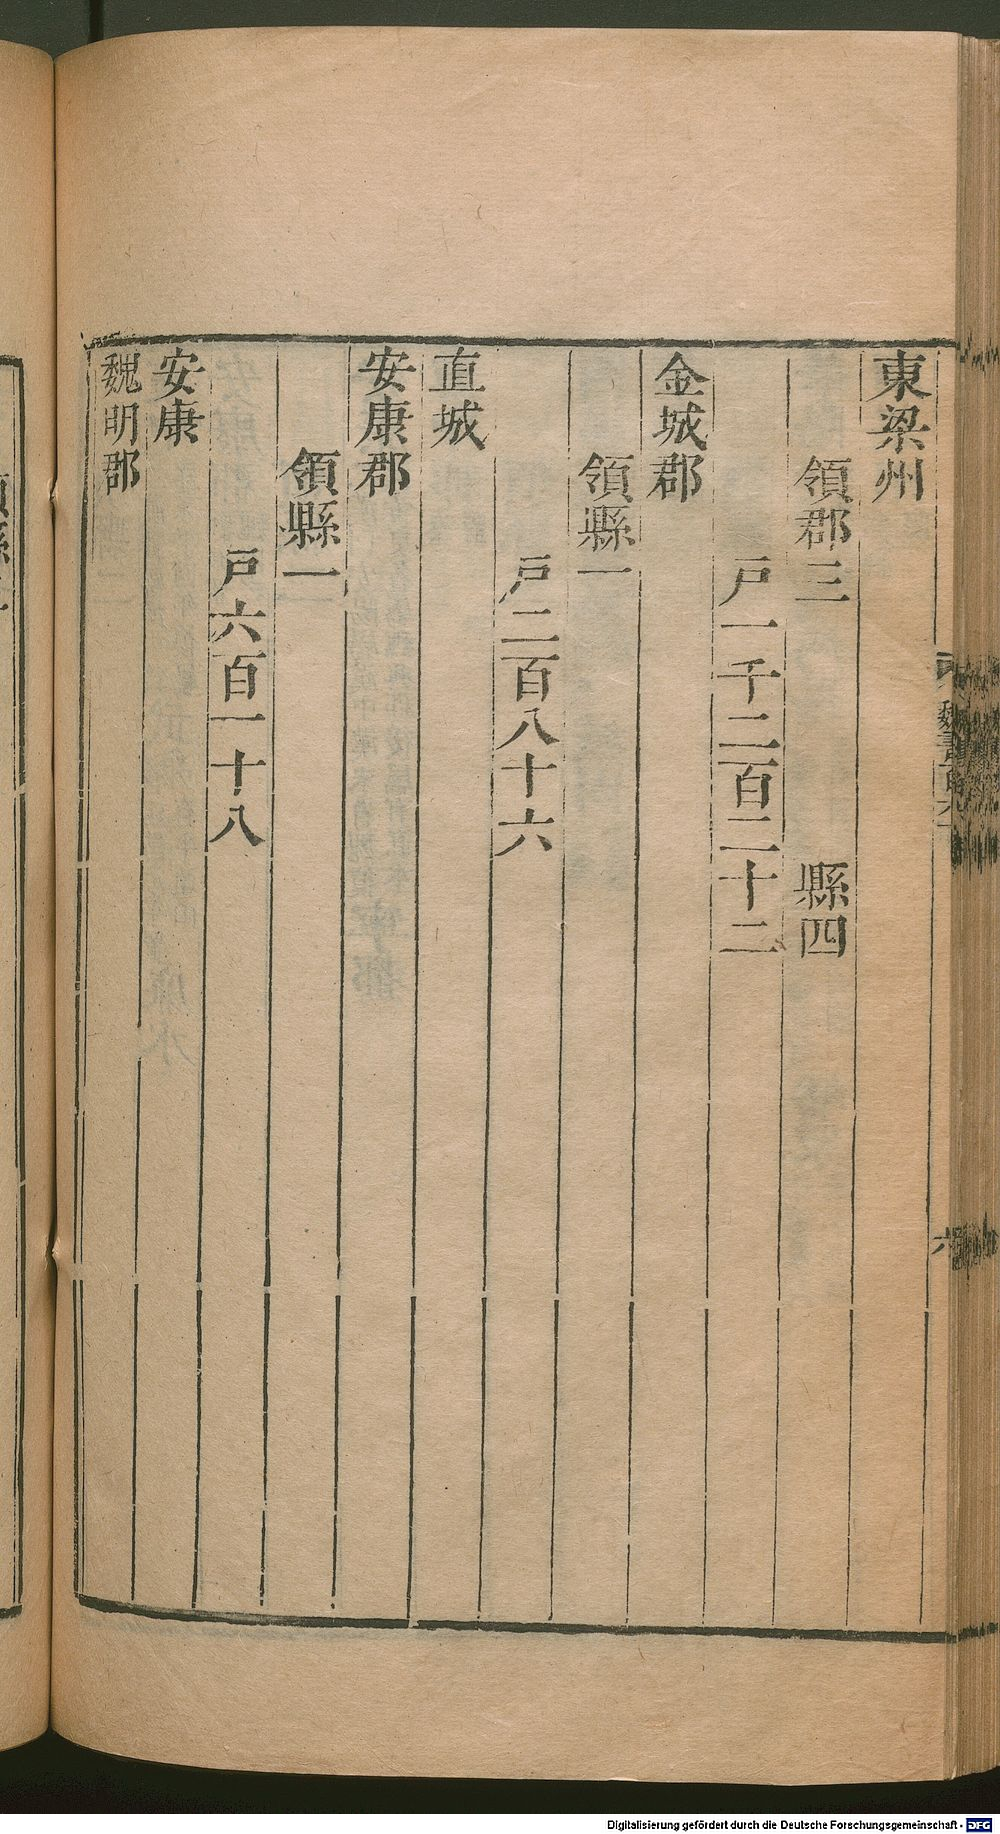 東梁州
領郡三 縣四
戶一千二百二十二
金城郡
領縣一
戶二百八十六
直城
安康郡
領縣一
戶六百一十八
安康
魏明郡
六
Digitalisierung gefördert durch die Deutsche Forschungsgemeinschaft - DFG